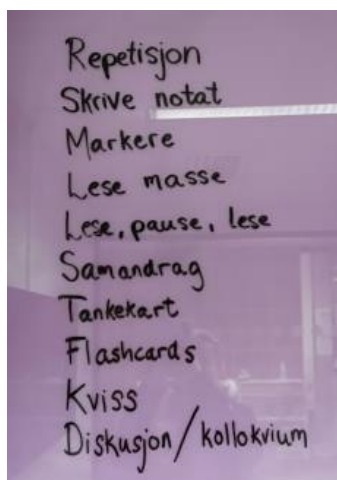 Repetisjon
Skrive notat
Markere
Lese masse
Lese, pause, lese
Samandrag
Tankekart
Flashcards
Kviss
Diskusjon/kollokvium